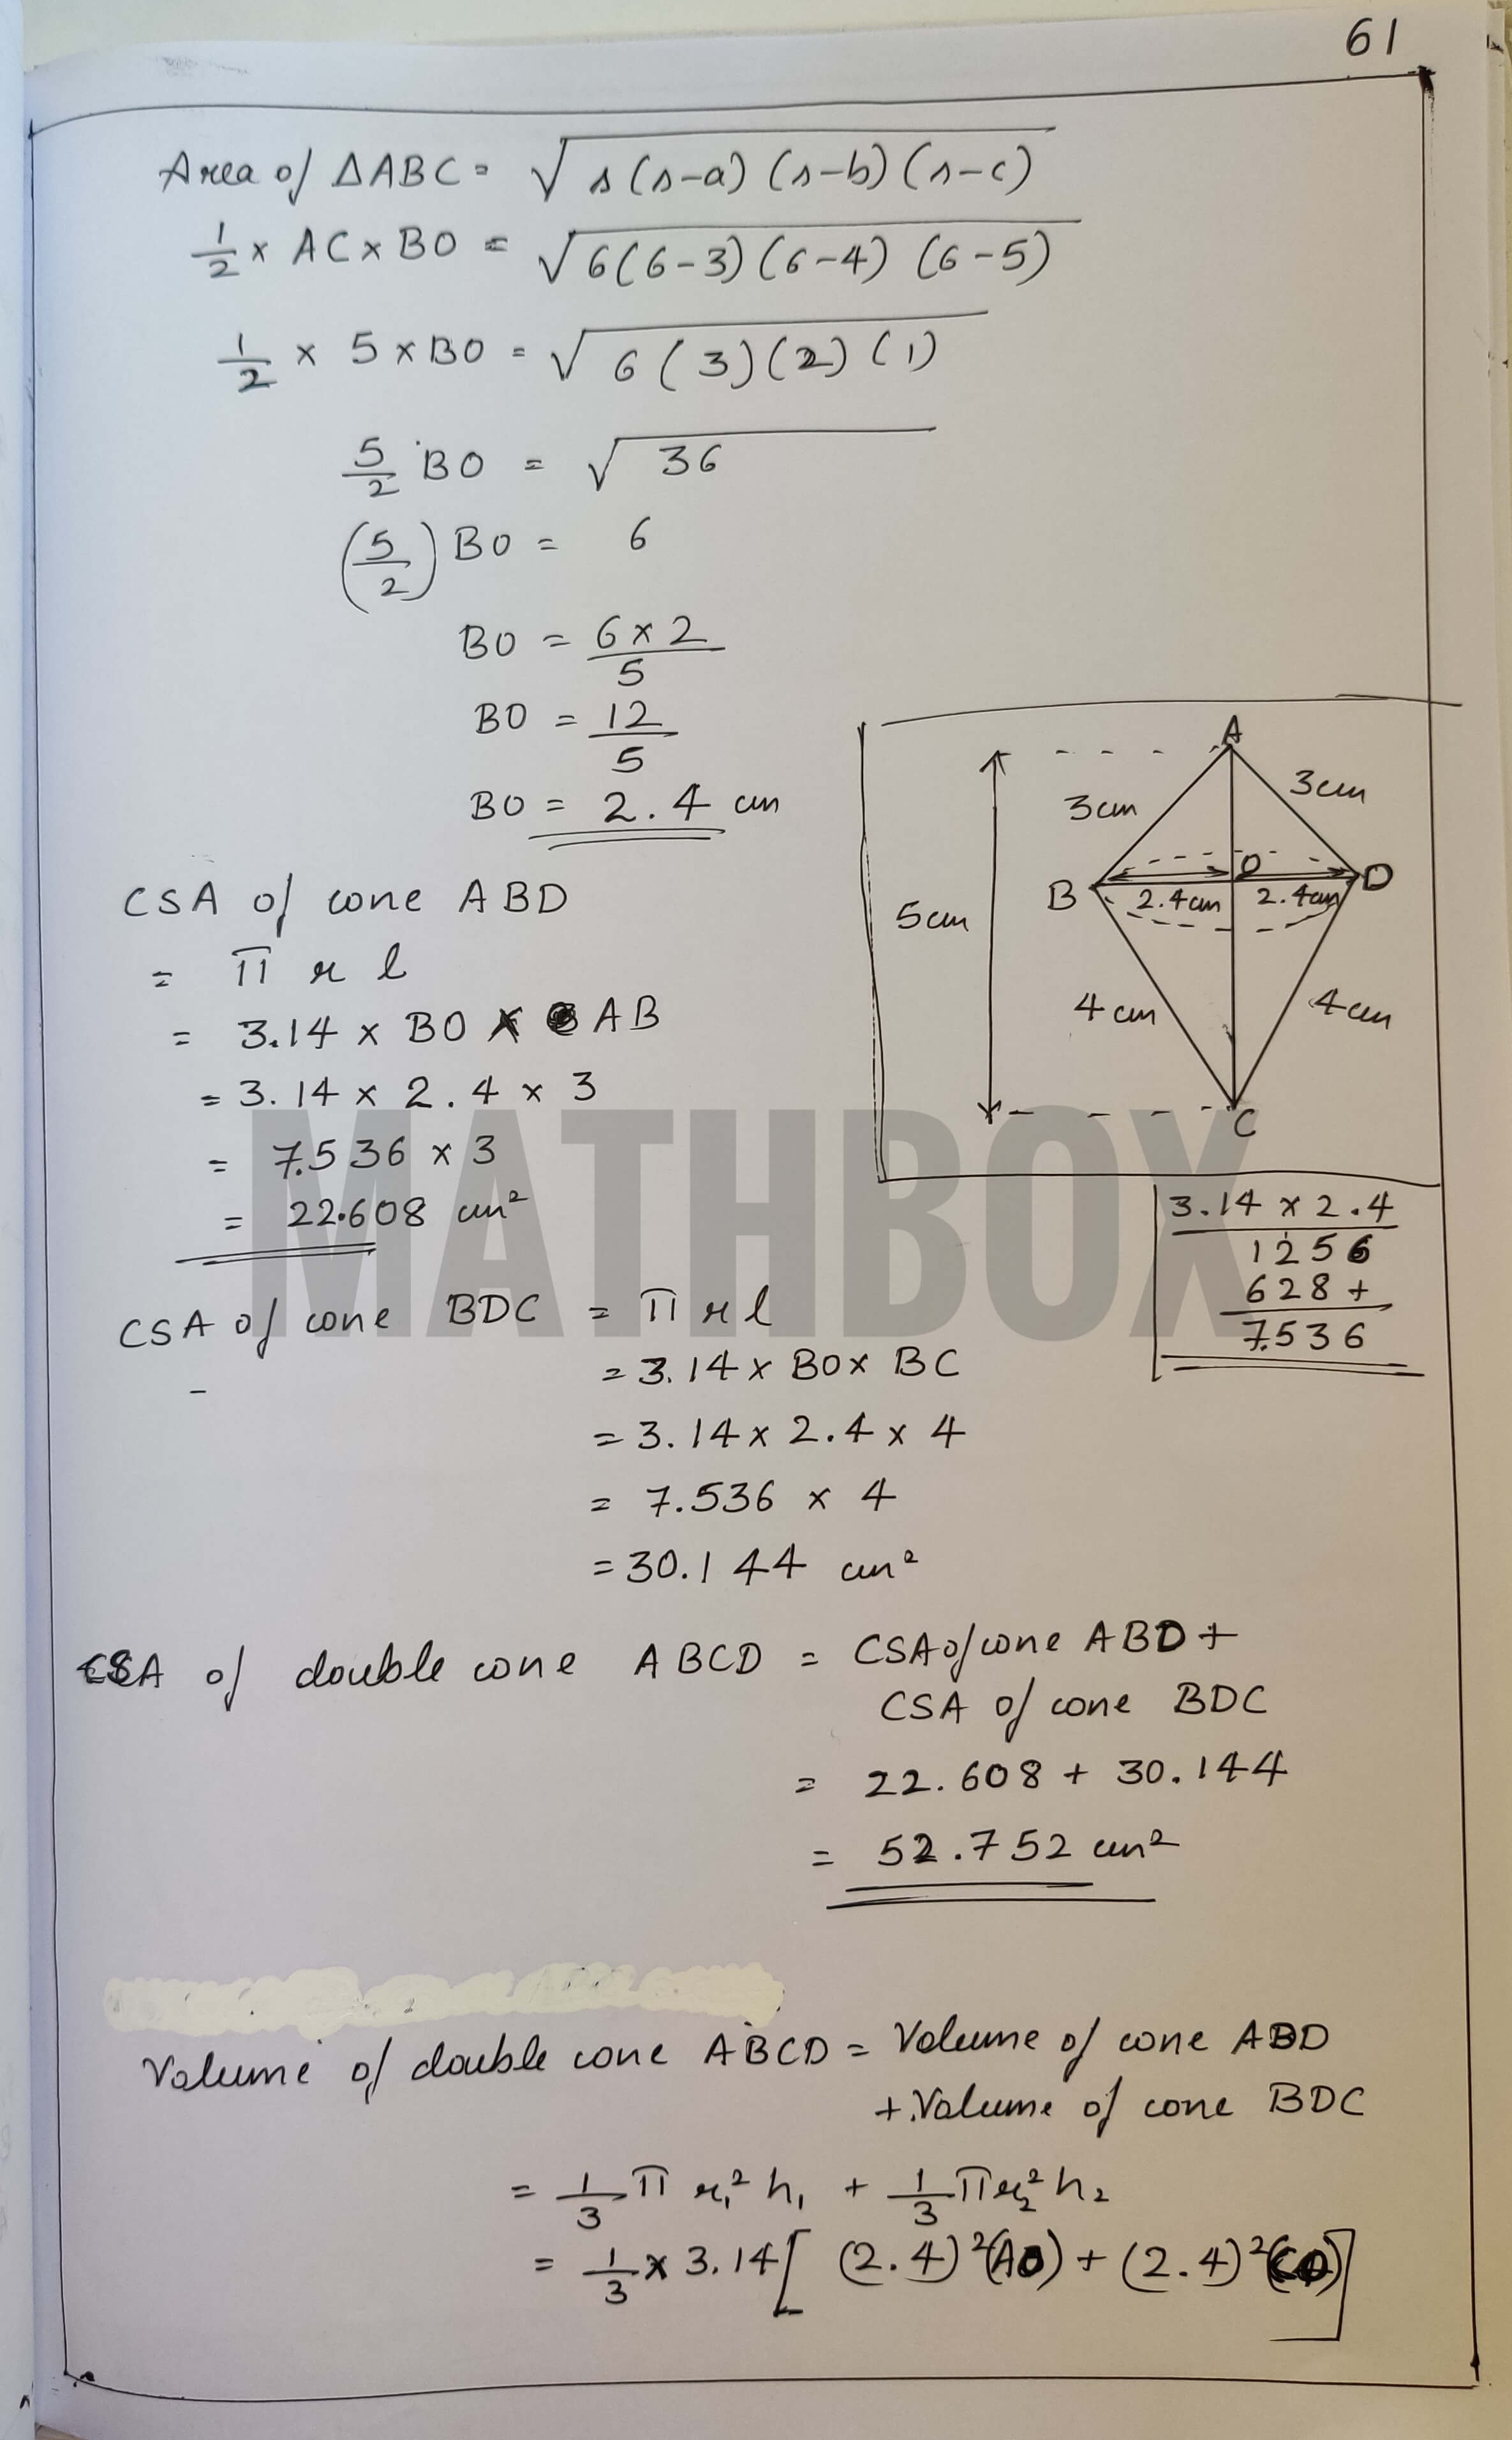 61
Area of ΔABC = √s(s-a)(s-b)(s-c)
1/2 × AC × BO = √6(6-3)(6-4)(6-5)
1/2 × 5 × BO = √6(3)(2)(1)
5/2 BO = √36
(5/2) BO = 6
BO = 6×2/5
BO = 12/5
BO = 2.4 cm
A
3cm
3cm
B
O
D
2.4cm
2.4cm
5cm
4cm
4cm
C
CSA of cone ABD
= π r l
= 3.14 × BO × AB
= 3.14 × 2.4 × 3
= 7.536 × 3
= 22.608 cm²
3.14 × 2.4
1256
628+
7.536
MATHBOX
CSA of cone BDC = π r l
= 3.14 × BO × BC
= 3.14 × 2.4 × 4
= 7.536 × 4
= 30.144 cm²
CSA of double cone ABCD = CSA of cone ABD +
CSA of cone BDC
= 22.608 + 30.144
= 52.752 cm²
Volume of double cone ABCD = Volume of cone ABD
+ Volume of cone BDC
= 1/3 π r₁² h₁ + 1/3 π r₂² h₂
= 1/3 × 3.14 [ (2.4)²(AO) + (2.4)²(CO) ]